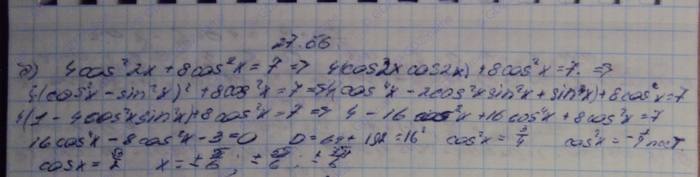 27.56.
б) 4cos²2x + 8cos²x = 7 => 4(cos2x cos2x) + 8cos²x = 7. =>
4(cos²x - sin²x)² + 8cos²x = 7 => 4(cos⁴x - 2cos²x sin²x + sin⁴x) + 8cos²x = 7
4(1 - 4cos²x sin²x) + 8cos²x = 7 => 4 - 16cos²x + 16cos⁴x + 8cos²x = 7
16cos⁴x - 8cos²x - 3 = 0 D = 64 + 192 = 16² cos²x = 3/4 cos²x = -1/4
cosx = x = ± π/6 ; ± 5π/6 ;